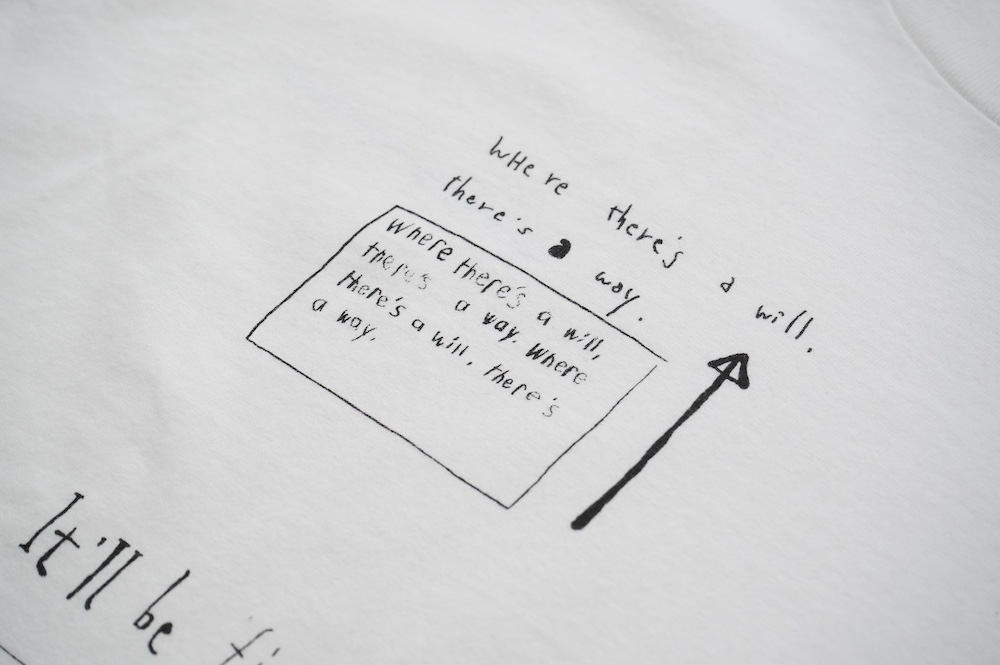 WHere there's a will.
there's a way.
Where there's a will,
there's a way. Where
there's a will, there's
a way.
It'll be